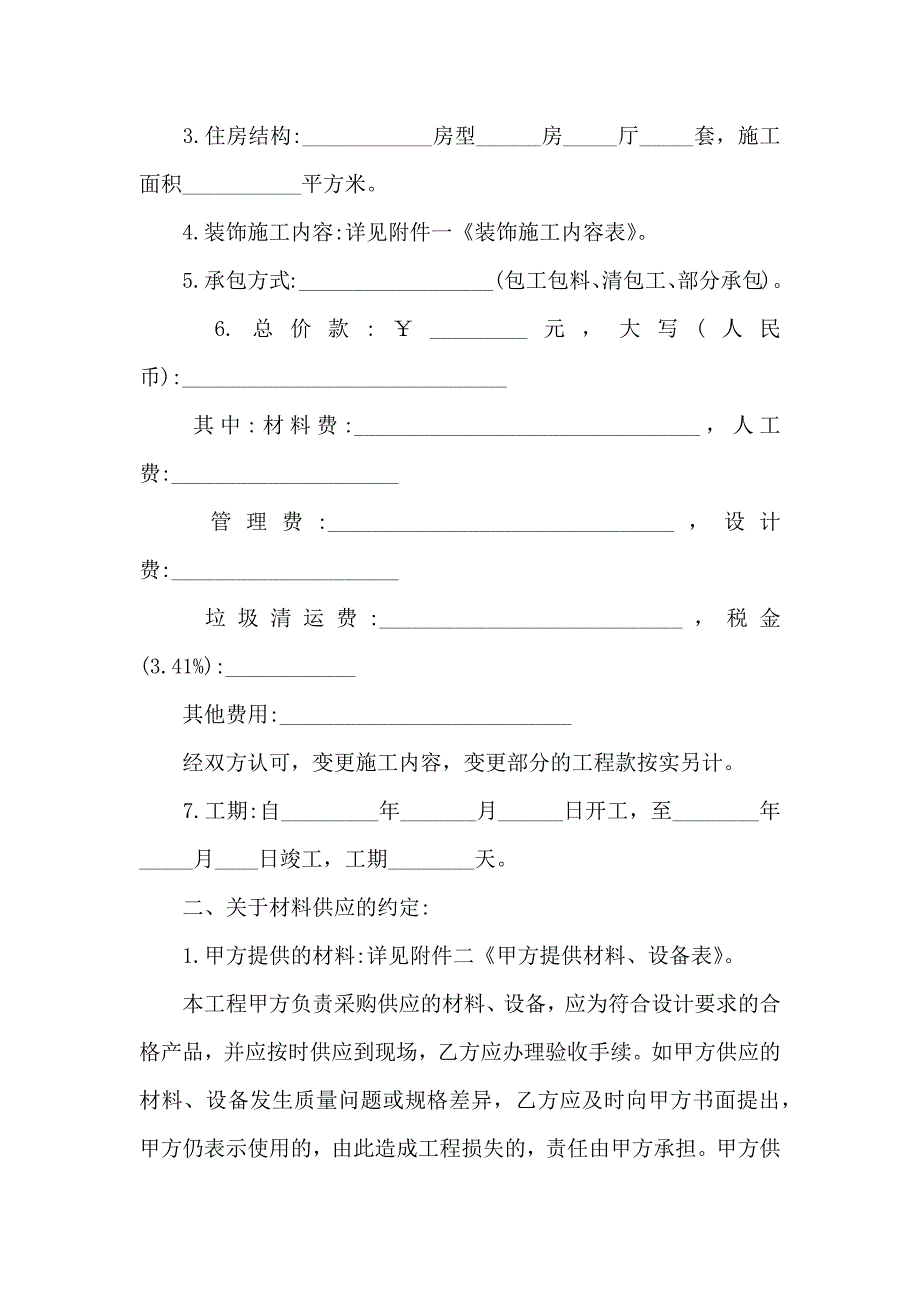 3.住房结构:____________房型______房_____厅_____套，施工
面积___________平方米。
4.装饰施工内容:详见附件一《装饰施工内容表》。
5.承包方式:__________________(包工包料、清包工、部分承包)。
6.总价款:￥_________元，大写(人民
币):______________________________
其中:材料费:________________________________，人工
费:_____________________
管理费:________________________________，设计
费:_____________________
垃圾清运费:____________________________，税金
(3.41%):____________
其他费用:___________________________
经双方认可，变更施工内容，变更部分的工程款按实另计。
7.工期:自_________年_______月______日开工，至________年
_____月____日竣工，工期________天。
二、关于材料供应的约定:
1.甲方提供的材料:详见附件二《甲方提供材料、设备表》。
本工程甲方负责采购供应的材料、设备，应为符合设计要求的合
格产品，并应按时供应到现场，乙方应办理验收手续。如甲方供应的
材料、设备发生质量问题或规格差异，乙方应及时向甲方书面提出，
甲方仍表示使用的，由此造成工程损失的，责任由甲方承担。甲方供